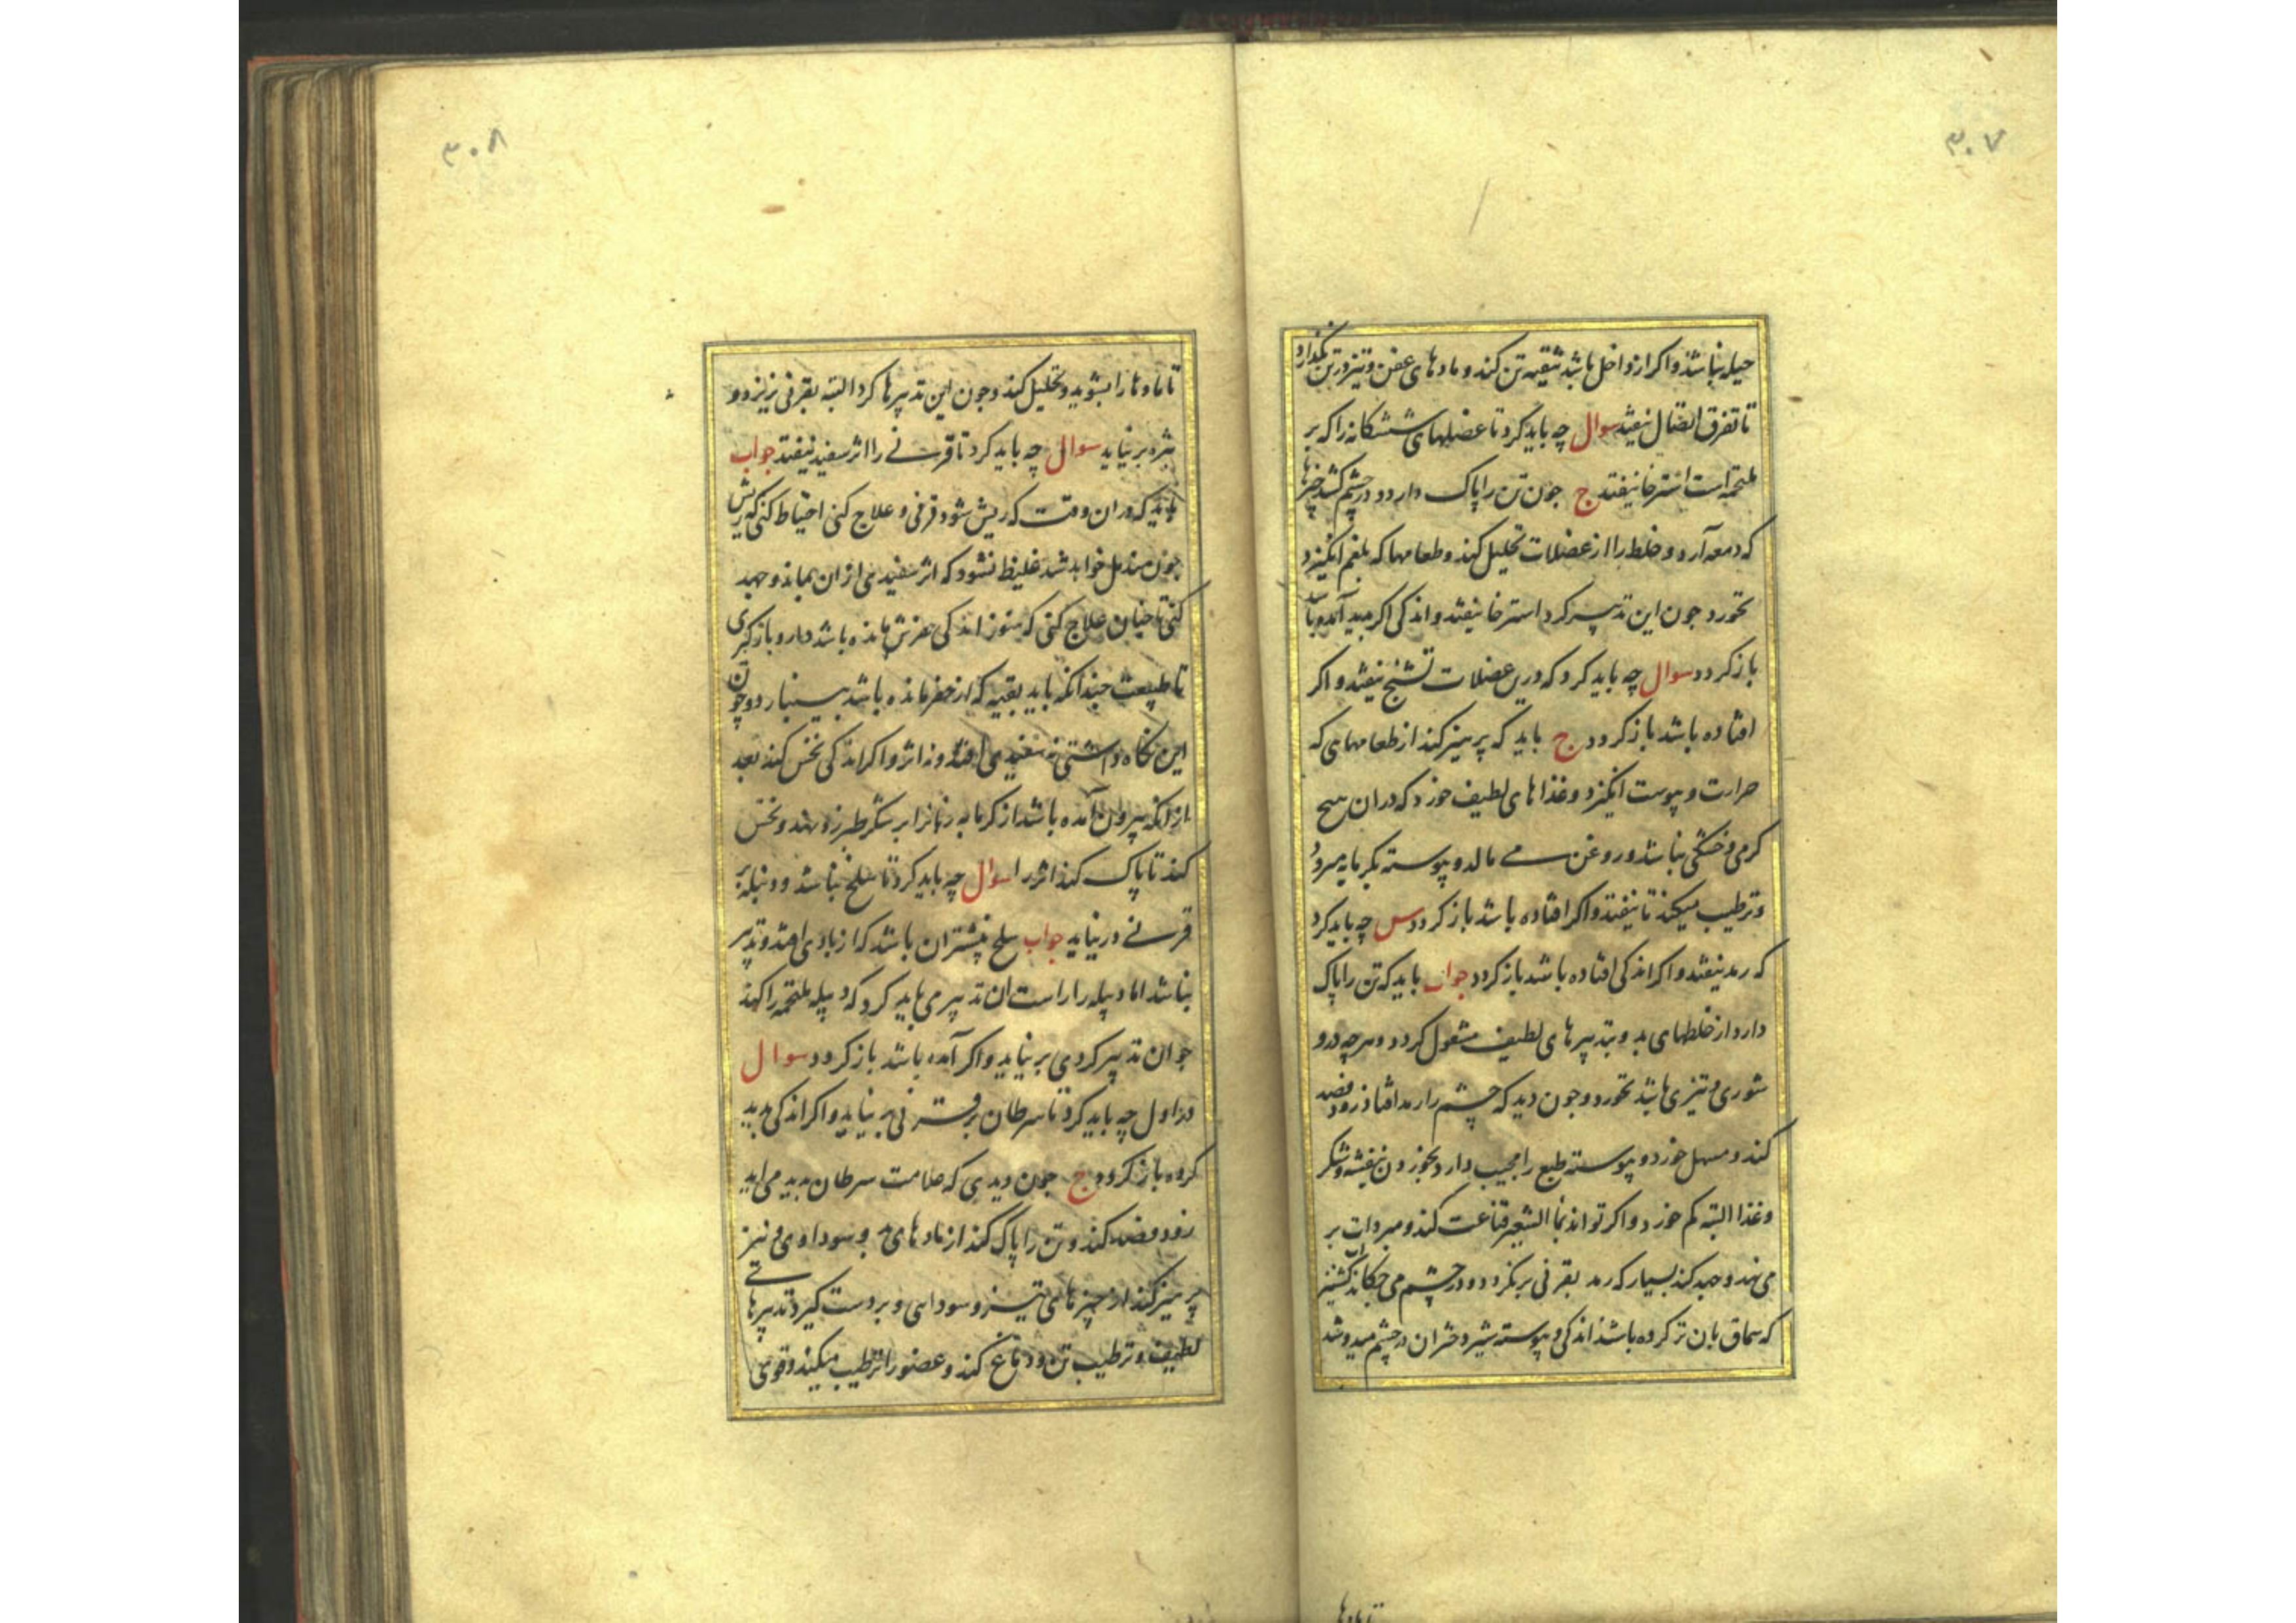 ۳۰۷
حیله نباشد واکر از داخل باشد تنقیه تن کند و مادهای عفن و تیز در تن نکذارد
تا تفرق اتصال نیفتد سوال چه باید کرد تا عضلهای ششکانه را که بر
ملتحمه است استرخا نیفتد ج جون تن را پاک دارد و در چشم کشد چیزها
که دمعه آرد و خلط را از عضلات تحلیل کند و طعامها که بلغم انکیزد
نخورد جون این تدبیر کرد استرخا نیفتد و اندکی اکر پدید آمده باشد
باز کردد سوال چه باید کرد که درین عضلات تشنج نیفتد و اکر
افتاده باشد باز کردد ج باید که پرهیز کند از طعامهای که
حرارت و یبوست انکیزد و غذاهای لطیف خورد که در ان هیچ
کرمی و خشکی نباشد و روغن می مالد و پیوسته بکرمابه میرود
و ترطیب میکند تا نیفتد واکر افتاده باشد باز کردد س چه باید کرد
که رمد نیفتد و اکر اندکی افتاده باشد باز کردد جواب باید که تن را پاک
دارد از خلطهای بد و بتدبیرهای لطیف مشغول کردد و هرچه درو
شوری و تیزی باشد نخورد و جون دید که چشم را رمد افتاد زود فصد
کند و مسهل خورد و پیوسته طبع را مجیب دارد بخوردن بنفشه و شکر
و غذا البته کم خورد و اکر تواند بماالشعیر قناعت کند و مبردات بر
می نهد و جهد کند بسیار که رمد بقرنی برنکردد و در چشم می چکاند
که سماق بان تر کرده باشد اندکی و پیوسته شیر دختران در چشم میدوشد
تا مادها
۳۰۸
تا مادها را بشوید و تحلیل کند و جون این تدبیرها کرد البته بقرنی نریزد و
بثره برنیاید سوال چه باید کرد تا قرنی را اثر سفید نیفتد جواب
باید که در ان وقت که ریش شود قرنی و علاج کنی احتیاط کنی که ریش
جون مندمل خواهد شد غلیظ نشود که اثر سفیدی از ان بماند و جهد
کنی تا جنان علاج کنی که هنوز اندکی حفرش مانده باشد دارو باز کیری
تا طبیعت جندانکه باید بقیه که از حفر مانده باشد بینبارد و چون
این نکاه داشتی نه سفیدی افتد و نه اثر و اکر اندکی نخس کند بعد
از انکه بیرون آمده باشد از کرمابه شکر طبرزد نهد و نخس
کند تا پاک کند اثر را سوال چه باید کرد تا سلخ نباشد و دبیله بر
قرنی در نیاید جواب سلخ بیشتر ان باشد که از بادی افتد و تدبیر
نباشد اما دبیله را راست ان تدبیر می باید کرد که دبیله ملتحمه را کهند
جو ان تدبیر کردی برنیاید واکر آمده باشد باز کردد سوال
در اول چه باید کرد تا سرطان بر قرنی برنیاید و اکر اندکی پدید
کرده باز کردد ج جون دیدی که علامت سرطان پدید می اید
زود فصد کند و تن را پاک کند از مادهای بد و سوداوی و نیز
پرهیز کند از چیزهای تیز و سودایی و بر دست کیرد تدبیرهای
لطیف و ترطیب تن و دماغ کند و عضو را ترطیب میکند و قوی